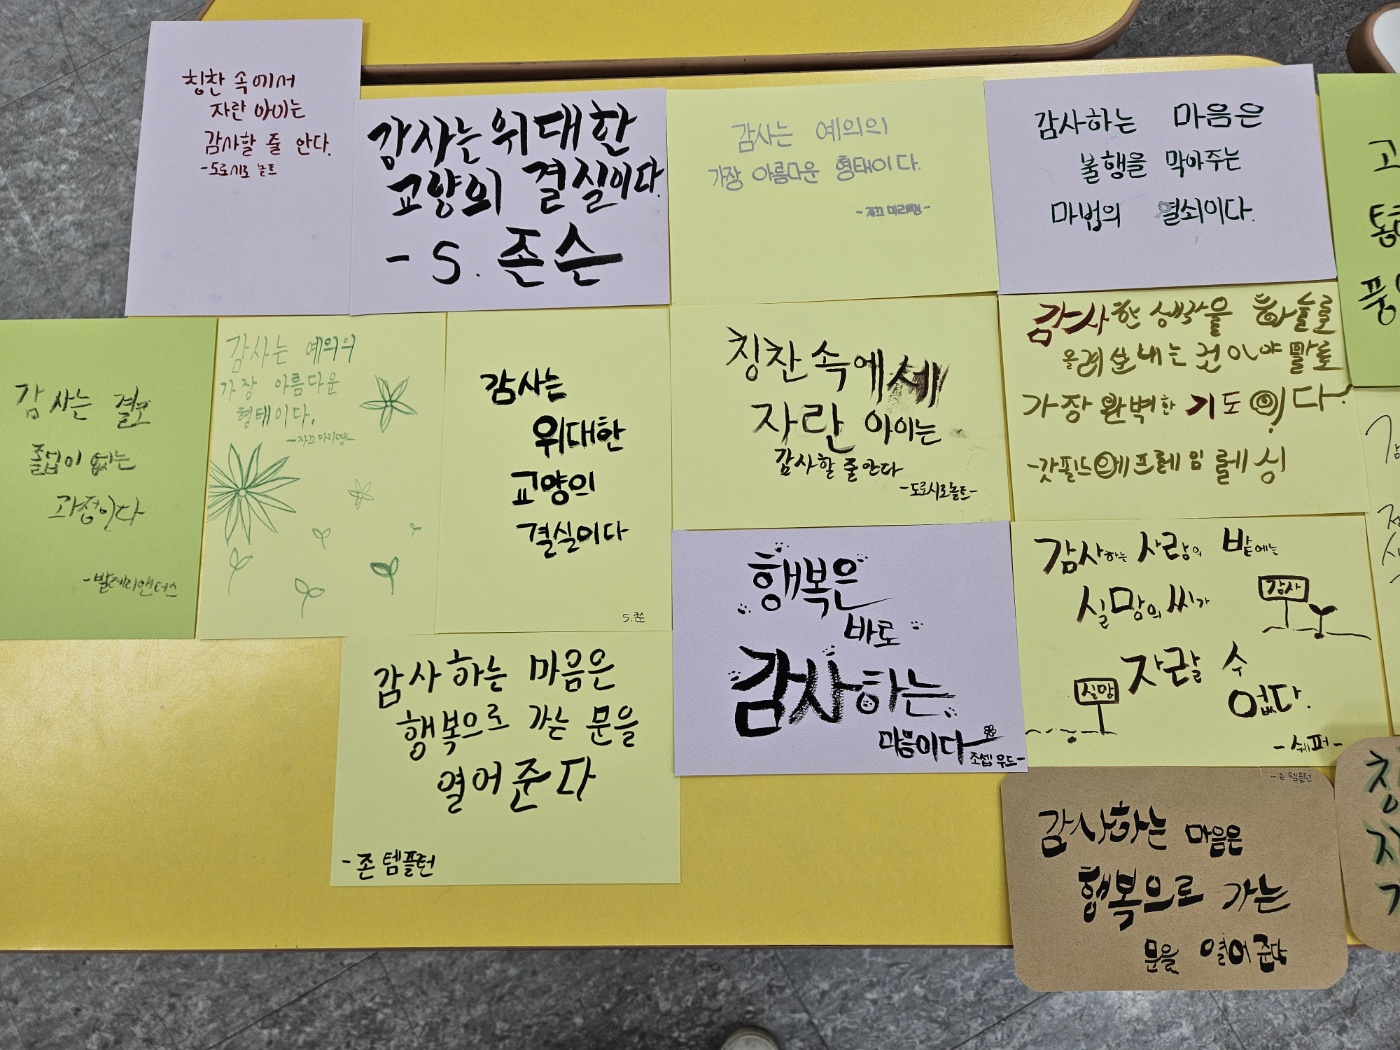 칭찬 속에서
자란 아이는
감사할 줄 안다.
-도로시로 놀트
감사는 위대한
교양의 결실이다
- S. 존슨
감사는 예의의
가장 아름다운 형태이다.
-자끄 마리땡-
감사하는 마음은
불행을 막아주는
마법의 열쇠이다.
고
통
풍
감사는 결코
졸업이 없는
과정이다
-발레리앤더스
감사는 예의의
가장 아름다운
형태이다.
-자끄 마리땡-
감사는
위대한
교양의
결실이다
S.존
칭찬 속에세
자란 아이는
감사할 줄 안다
-도로시로놀트-
감사한 생각을 하늘로
올려 보내는 것이야 말로
가장 완벽한 기도 이다
-갓필드에프레임 레싱
감사하는 마음은
행복으로 가는 문을
열어 준다
- 존 템플턴
행복은
바로
감사하는
마음이다
조셉 우드-
감사하는 사람의 밭에는
실망의 씨가
자랄 수
없다.
감사
실망
-쉐퍼-
-존 템플턴
감사하는 마음은
행복으로 가는
문을 열어 준다
칭
자